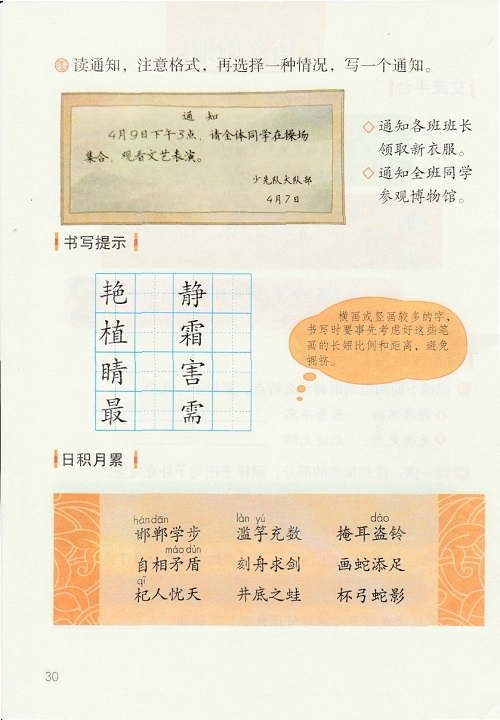 读通知，注意格式，再选择一种情况，写一个通知。
通 知
4月9日下午3点，请全体同学在操场
集合，观看文艺表演。
少先队大队部
4月7日
◇ 通知各班班长
领取新衣服。
◇ 通知全班同学
参观博物馆。
书写提示
艳 静
植 霜
晴 害
最 需
横画或竖画较多的字，
书写时要事先考虑好这些笔
画的长短比例和距离，避免
拥挤。
日积月累
hán dān làn yú dào
邯郸学步 滥竽充数 掩耳盗铃
máo dùn
自相矛盾 刻舟求剑 画蛇添足
qǐ
杞人忧天 井底之蛙 杯弓蛇影
30